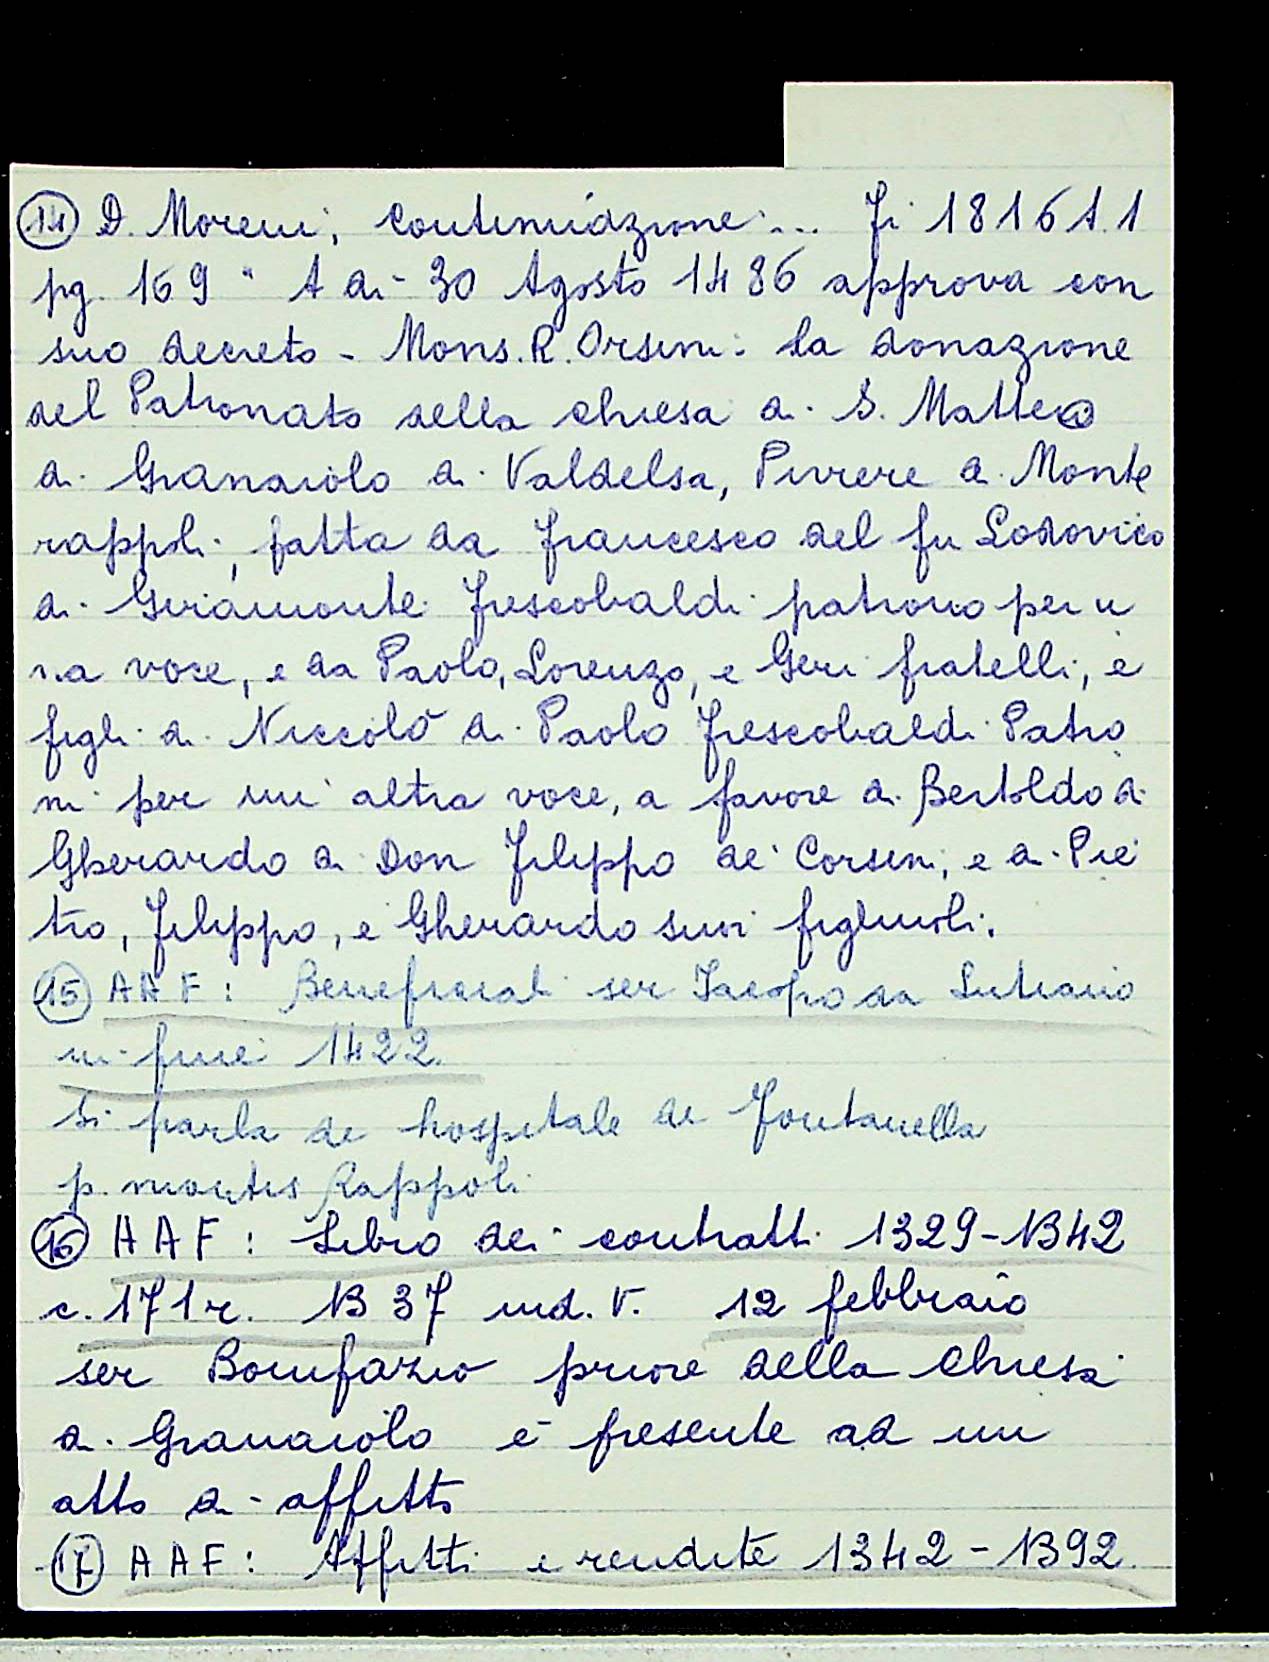 14 D. Moreni, continuazione... Fi 1816 t.1
pg. 169 " A di 30 Agosto 1486 approva con
suo decreto - Mons. R. Orsini: la donazione
del Patronato della chiesa di S. Matteo
di Granaiolo di Valdelsa, Piviere di Monte
rappoli, fatta da Francesco del fu Lodovico
di Giramonte Frescobaldi patrono per u
na voce, e da Paolo, Lorenzo, e Geri fratelli, e
figli di Niccolò di Paolo Frescobaldi Patro
ni per un' altra voce, a favore di Bertoldo di
Gherardo di Don Filippo de' Corsini, e di Pie
tro, Filippo, e Gherardo suoi figliuoli.
15 AAF: Beneficiali ser Jacopo da Lutiano
in fine 1422.
Si parla de hospitale de Fontanella
p. montis Rappoli
16 AAF: Libro dei contratti 1329-1342
c. 171r. 1337 ind. V. 12 febbraio
ser Bonifazio priore della chiesa
di Granaiolo è presente ad un
atto di affitto
17 AAF: Affitti e rendite 1342-1392